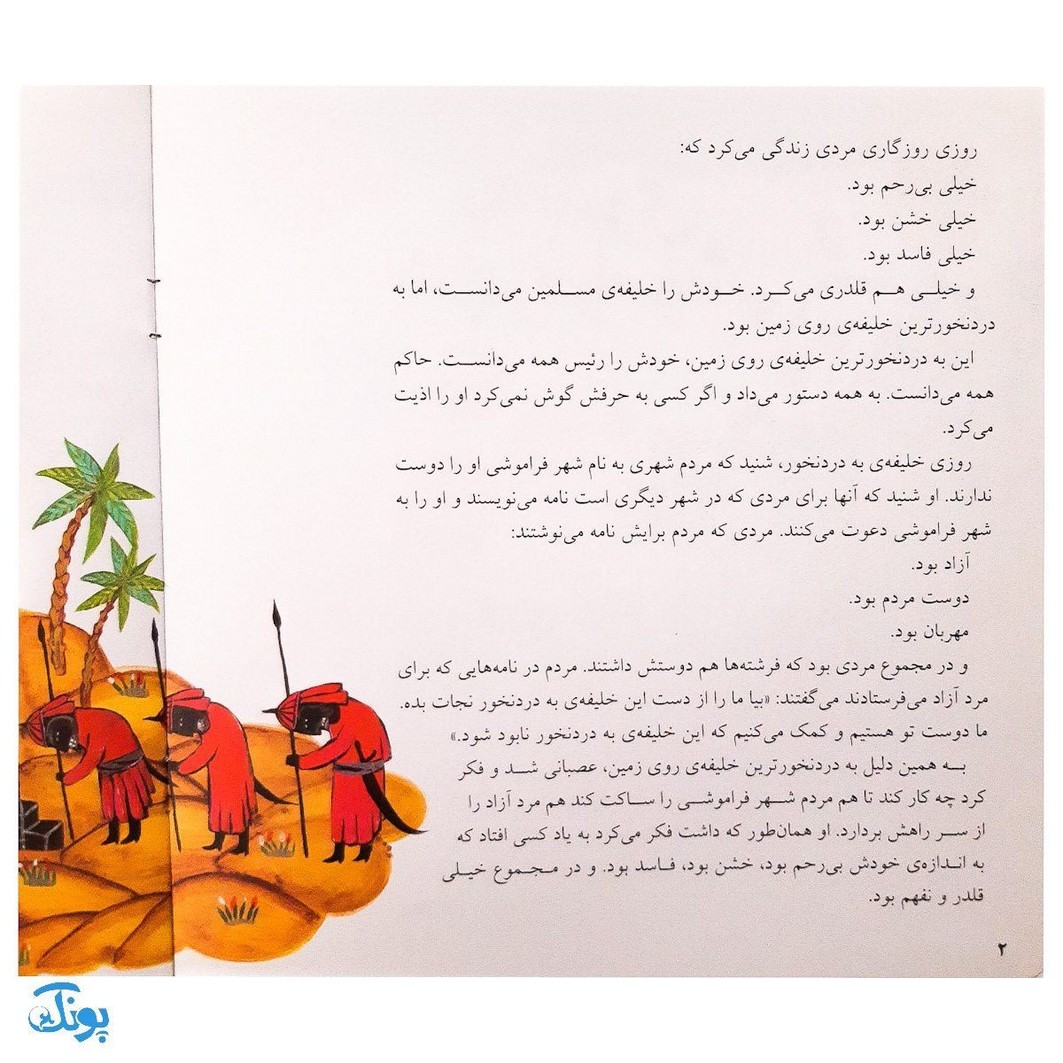 روزی روزگاری مردی زندگی می‌کرد که:
خیلی بی‌رحم بود.
خیلی خشن بود.
خیلی فاسد بود.
و خیلی هم قلدری می‌کرد. خودش را خلیفه‌ی مسلمین می‌دانست، اما به
دردنخورترین خلیفه‌ی روی زمین بود.
این به دردنخورترین خلیفه‌ی روی زمین، خودش را رئیس همه می‌دانست. حاکم
همه می‌دانست. به همه دستور می‌داد و اگر کسی به حرفش گوش نمی‌کرد او را اذیت
می‌کرد.
روزی خلیفه‌ی به دردنخور، شنید که مردم شهری به نام شهر فراموشی او را دوست
ندارند. او شنید که آنها برای مردی که در شهر دیگری است نامه می‌نویسند و او را به
شهر فراموشی دعوت می‌کنند. مردی که مردم برایش نامه می‌نوشتند:
آزاد بود.
دوست مردم بود.
مهربان بود.
و در مجموع مردی بود که فرشته‌ها هم دوستش داشتند. مردم در نامه‌هایی که برای
مرد آزاد می‌فرستادند می‌گفتند: «بیا ما را از دست این خلیفه‌ی به دردنخور نجات بده.
ما دوست تو هستیم و کمک می‌کنیم که این خلیفه‌ی به دردنخور نابود شود.»
به همین دلیل به دردنخورترین خلیفه‌ی روی زمین، عصبانی شد و فکر
کرد چه کار کند تا هم مردم شهر فراموشی را ساکت کند هم مرد آزاد را
از سر راهش بردارد. او همان‌طور که داشت فکر می‌کرد به یاد کسی افتاد که
به اندازه‌ی خودش بی‌رحم بود، خشن بود، فاسد بود. و در مجموع خیلی
قلدر و نفهم بود.
۲
پونک